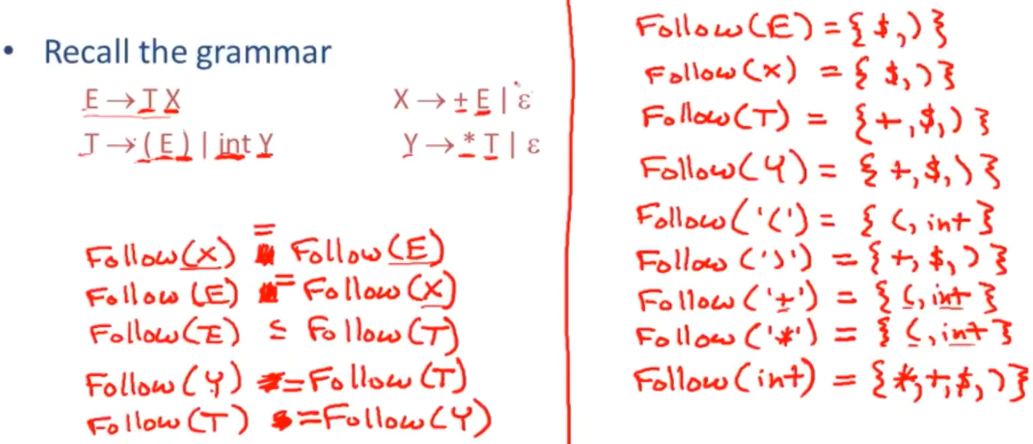 • Recall the grammar
E → T X
X → + E | ε
T → ( E ) | int Y
Y → * T | ε
Follow(X) = Follow(E)
Follow(E) = Follow(X)
Follow(E) ⊆ Follow(T)
Follow(Y) = Follow(T)
Follow(T) = Follow(Y)
Follow(E) = { $, ) }
Follow(X) = { $, ) }
Follow(T) = { +, $, ) }
Follow(Y) = { +, $, ) }
Follow('(') = { (, int }
Follow(')') = { +, $, ) }
Follow('+') = { (, int }
Follow('*') = { (, int }
Follow(int) = { *, +, $, ) }